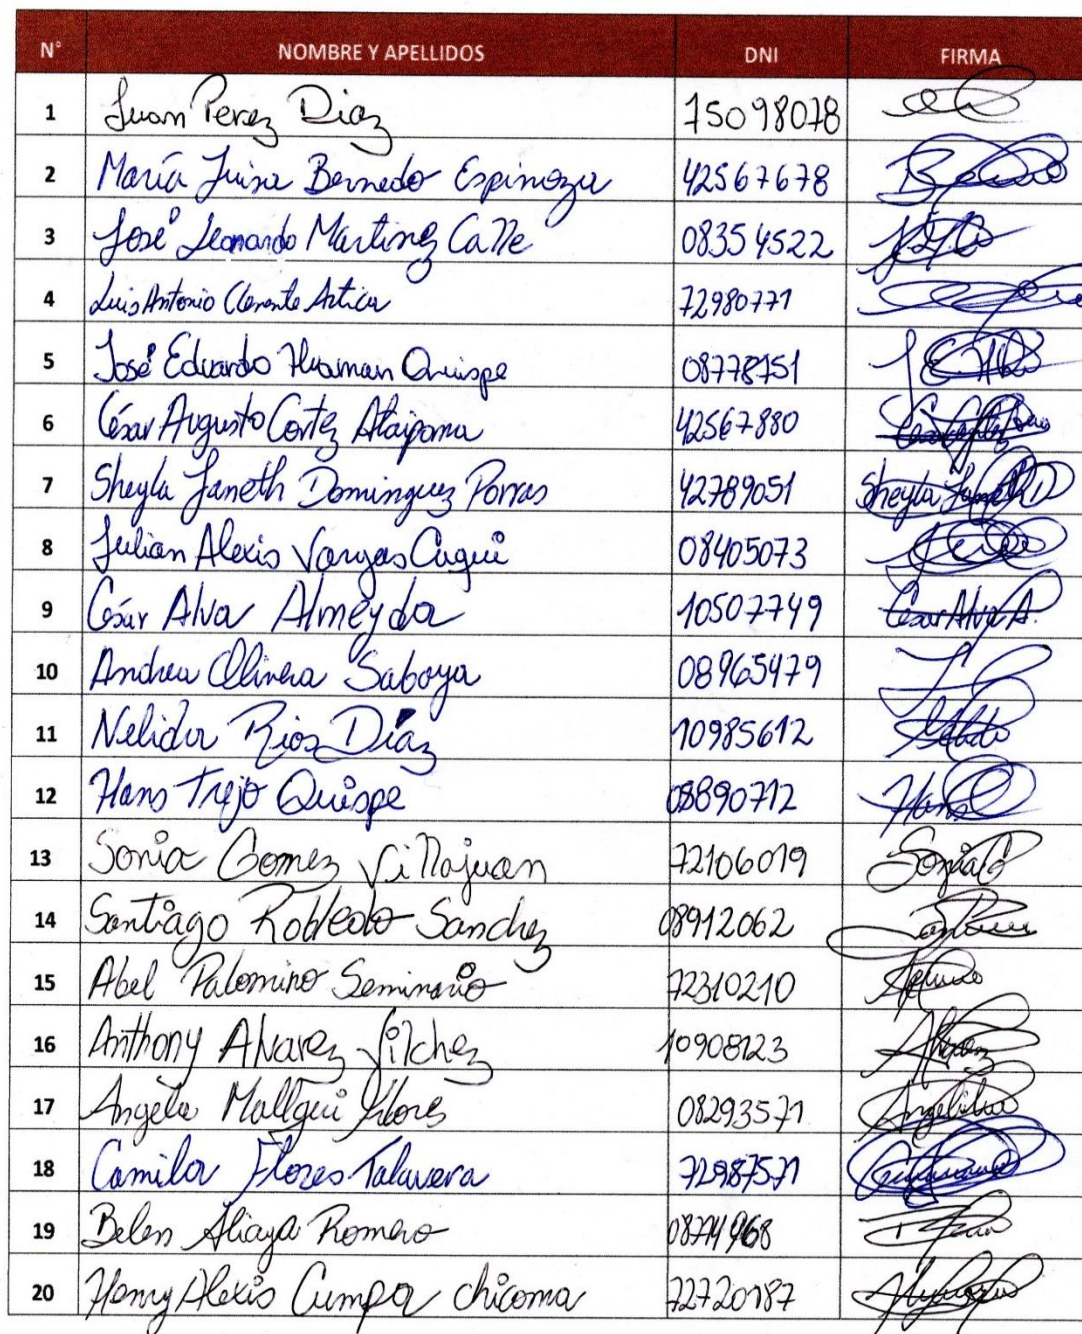 N° NOMBRE Y APELLIDOS DNI FIRMA
1 Juan Perez Diaz 75098078
2 María Luisa Bernedo Espinoza 42567678
3 José Leonardo Martinez Calle 08354522
4 Luis Antonio Clemente Artica 72980771
5 José Eduardo Huaman Quispe 08778751
6 César Augusto Cortez Ataipoma 42567880
7 Sheyla Janeth Dominguez Porras 42789051 Sheyla Janeth D
8 Julian Alexis Vargas Cuqui 08405073
9 César Alva Almeyda 10507749 César Alva A.
10 Andrea Olivera Saboya 08965479
11 Nelida Rios Díaz 10985612
12 Hans Trejo Quispe 08890712 Hans
13 Sonia Gomez Villajuan 72106019 Sonia G
14 Santiago Robledo Sanchez 08912062
15 Abel Palomino Seminario 72310210
16 Anthony Alvarez Vilchez 10908123
17 Angela Mallqui Flores 08293571
18 Camila Flores Talavera 72987571
19 Belen Aliaga Romero
20 Henry Alexis Cumpa chicoma 72720187